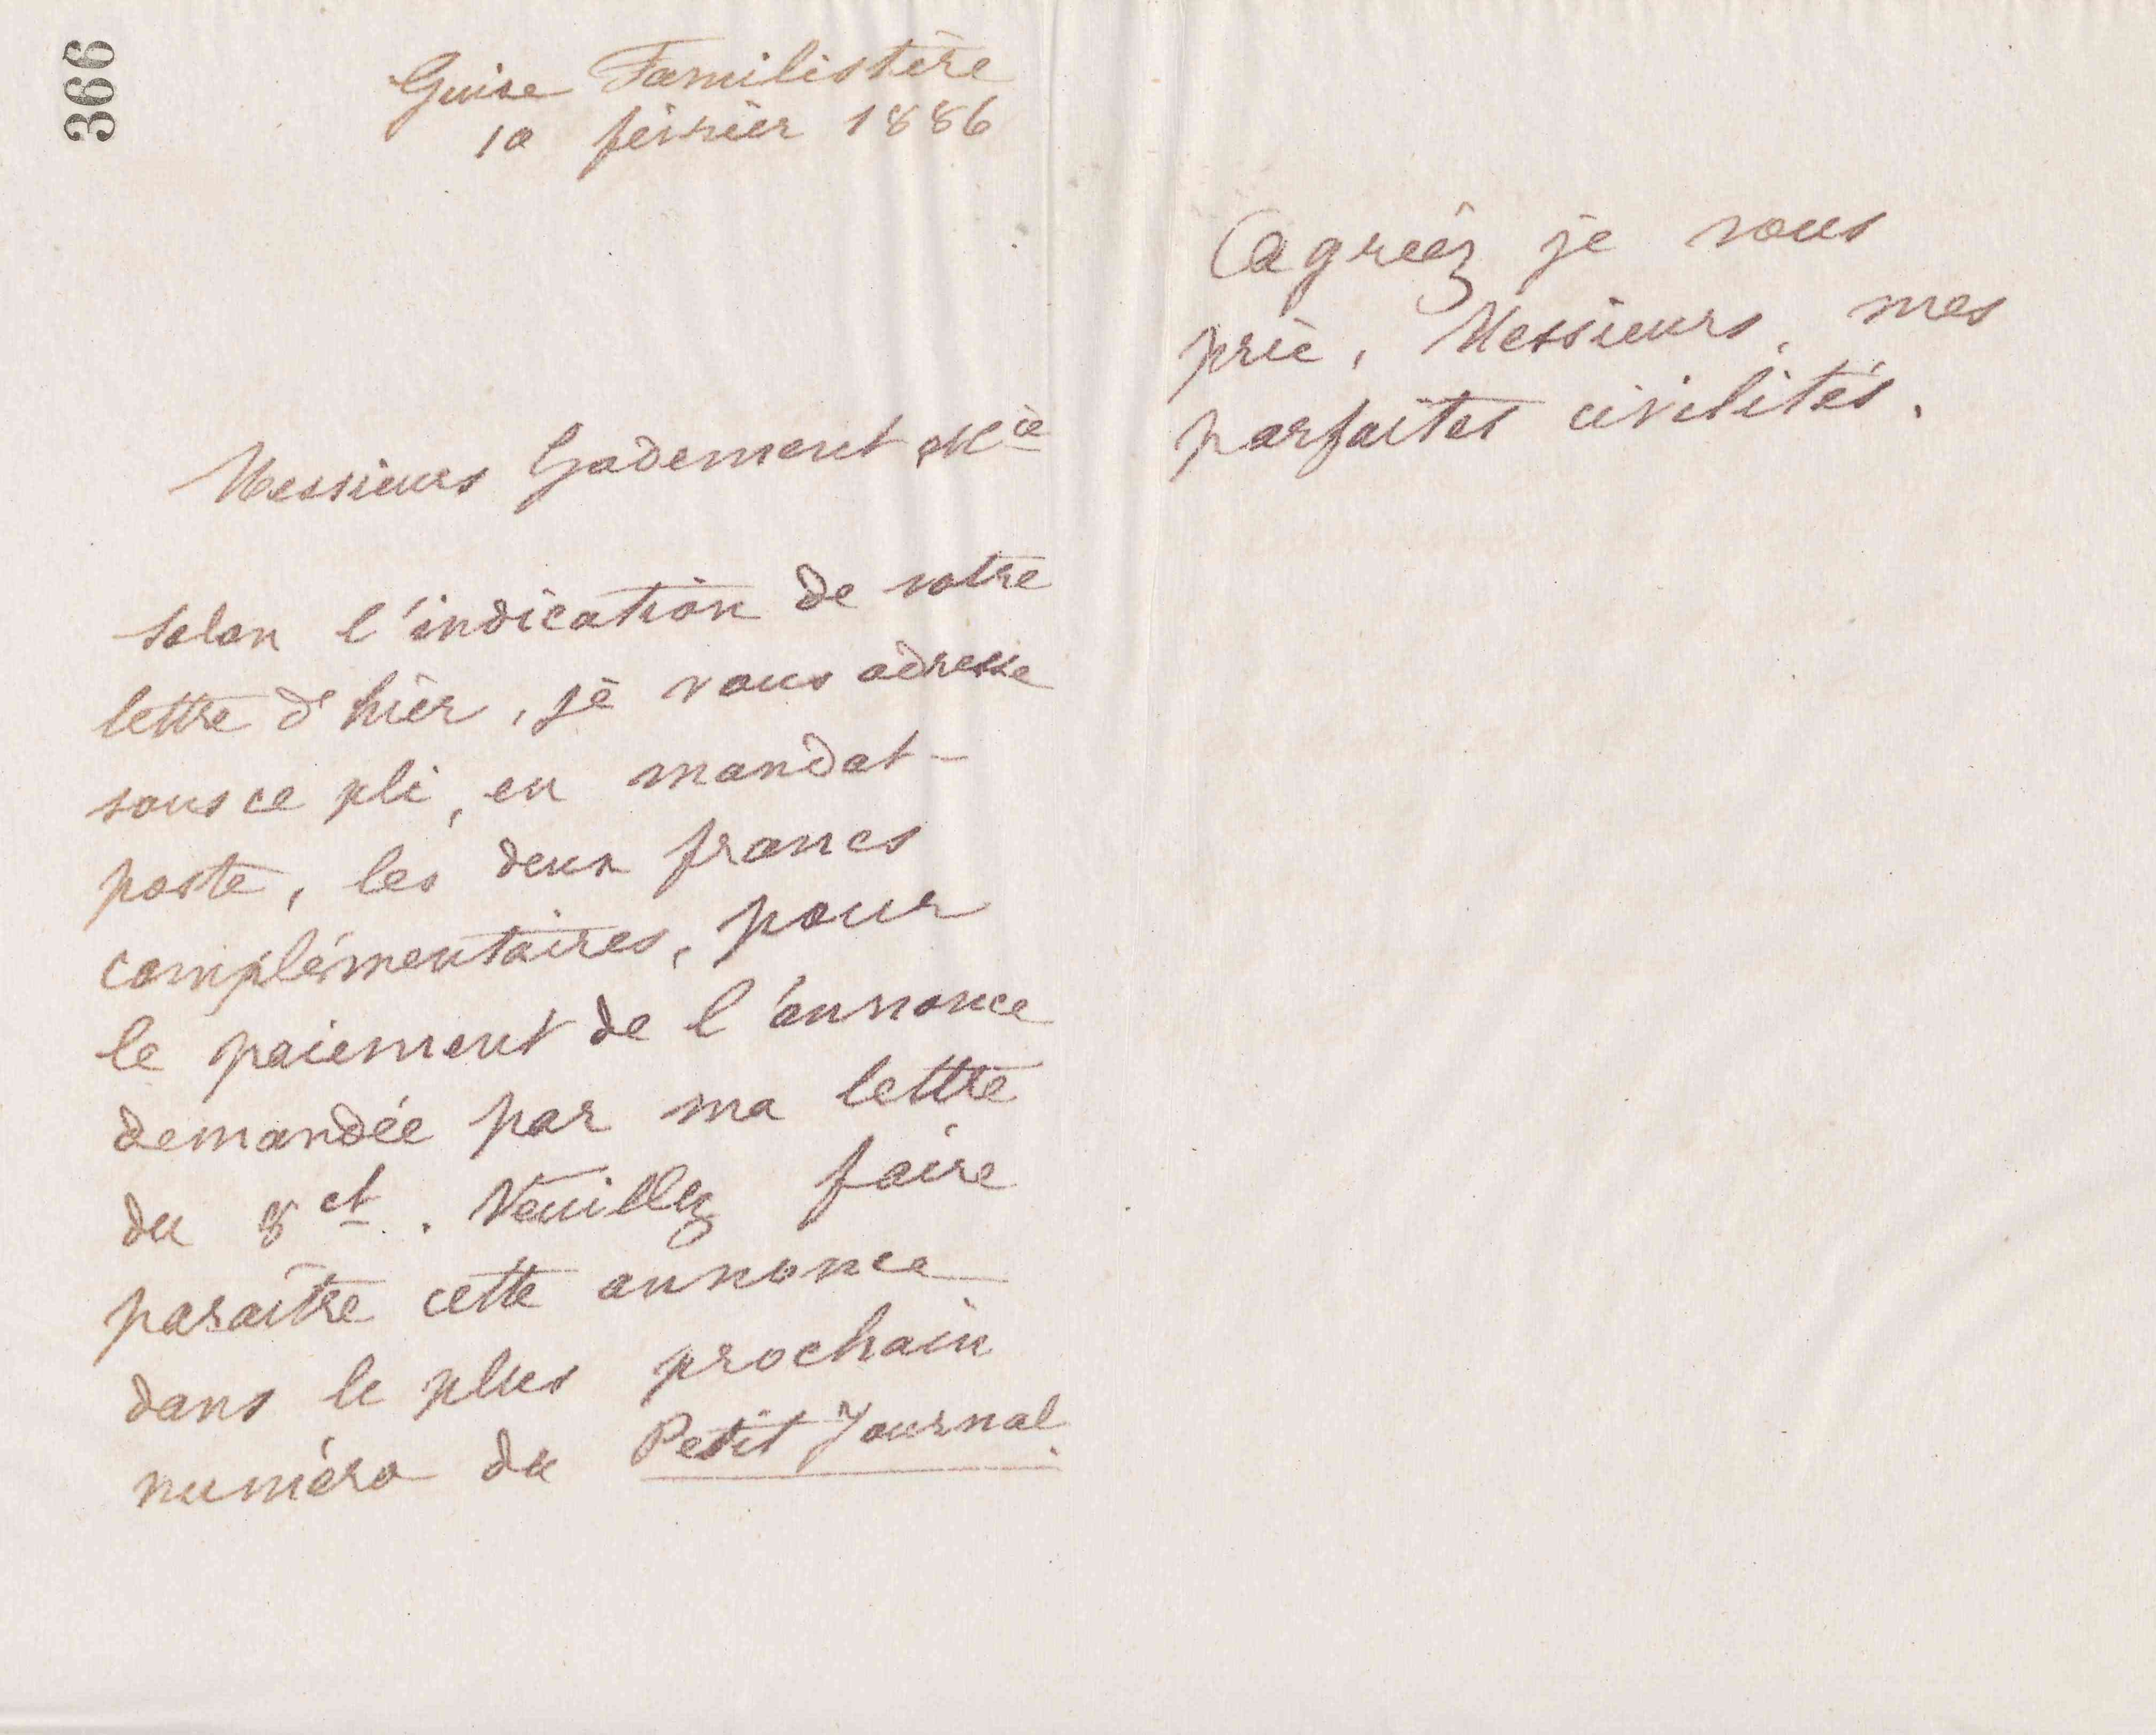 366
Guise Familistère
10 février 1886
Messieurs Gadement & Cie
Selon l'indication de votre
lettre d'hier, je vous adresse
sous ce pli, en mandat-
poste, les deux francs
complémentaires, pour
le paiement de l'annonce
demandée par ma lettre
du 8 ct. Veuillez faire
paraître cette annonce
dans le plus prochain
numéro du Petit Journal.
Agréez je vous
prie, Messieurs, mes
parfaites civilités.